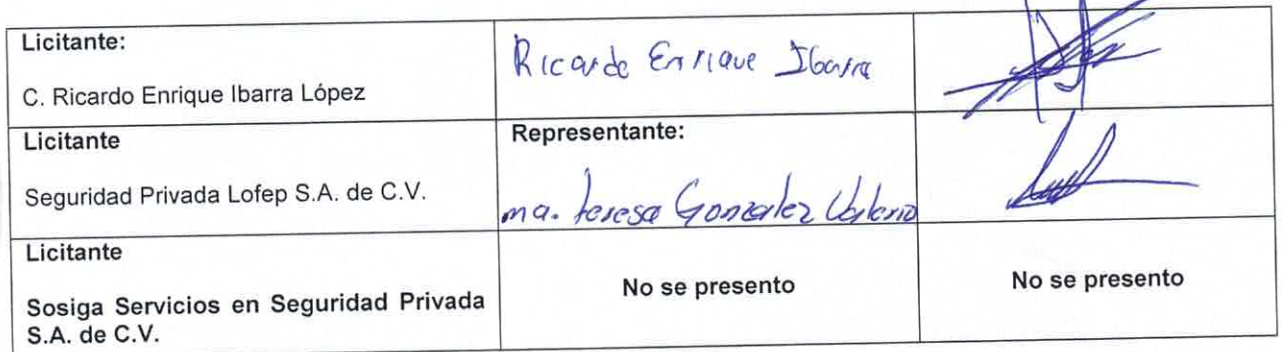 Licitante:
C. Ricardo Enrique Ibarra López
Ricardo Enrique Ibarra
Licitante
Seguridad Privada Lofep S.A. de C.V.
Representante:
ma. teresa Gonzalez Valerio
Licitante
Sosiga Servicios en Seguridad Privada
S.A. de C.V.
No se presento
No se presento